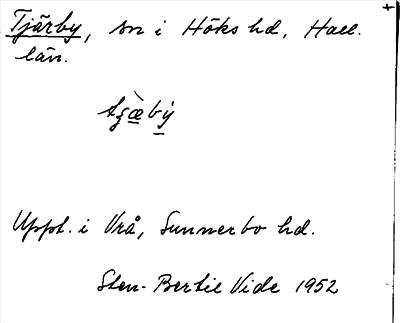 Tjärby, sn i Höks hd, Hall.
län.
Uppt. i Vrå, Sunnerbo hd.
Sten-Bertil Vide 1952